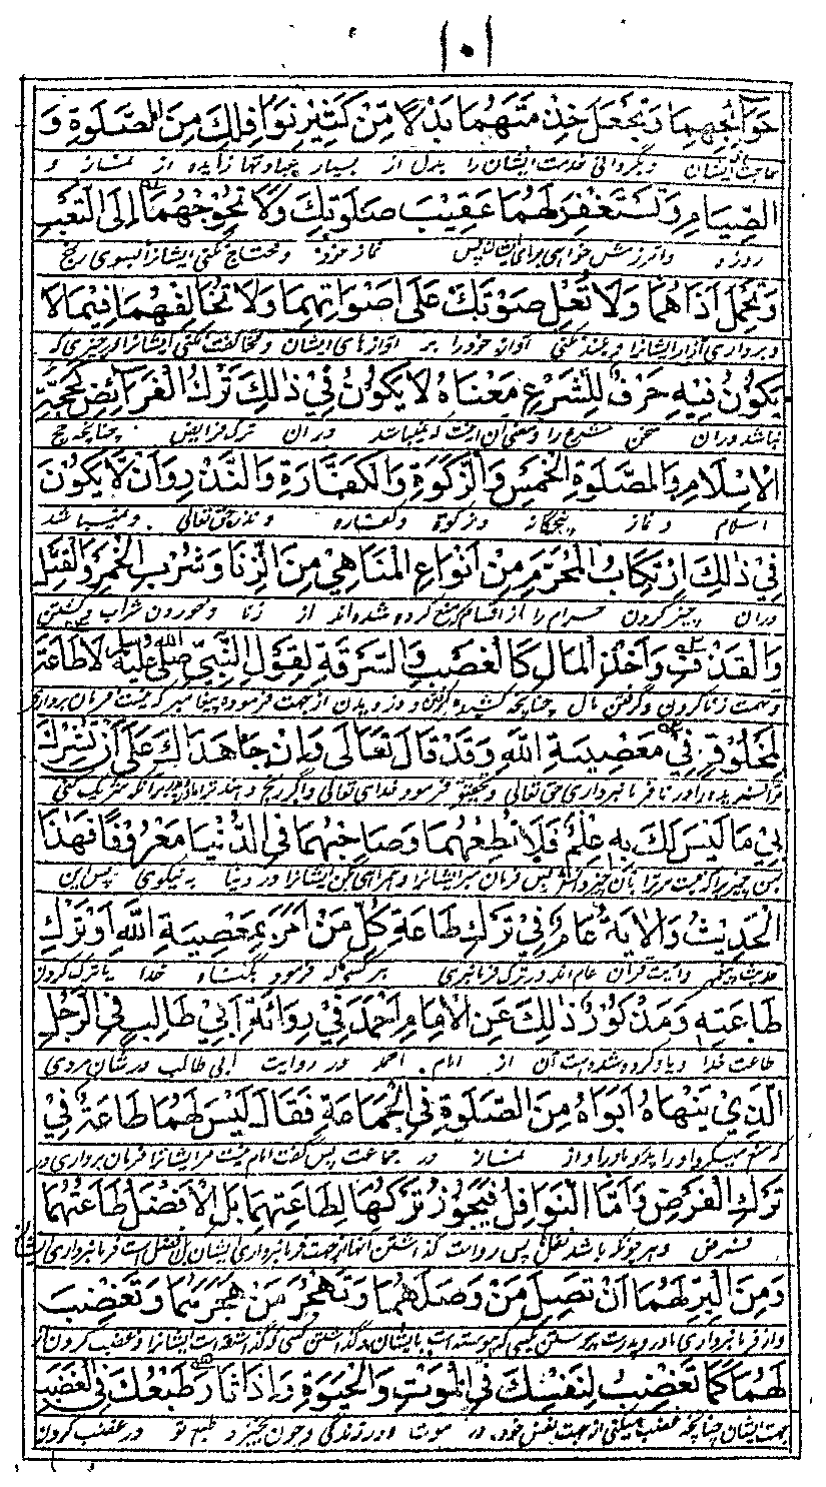 ١٠١
حَوَائِجِهِمَا وَتَجْعَلَ خِدْمَتَهُمَا بَدْلًا مِّنْ كَثِيْرِ نَوَافِلِكَ مِنَ الصَّلٰوةِ وَ
حاجت ایشان و بگردانی خدمت ایشان را بدل از بسیار زایده از نماز و
الصِّيَامِ وَتَسْتَغْفِرَ لَهُمَا عَقِيْبَ صَلٰوتِكَ وَلَا تُحْوِجْهُمَا اِلَى التَّعَبِ
روزه و آمرزش خواهی برای ایشان پس نماز خود و محتاج نکنی ایشانرا بسوی رنج
وَتَحْمِلَ اَذَاهُمَا وَلَا تُعْلِ صَوْتَكَ عَلٰى اَصْوَاتِهِمَا وَلَا تُخَالِفْهُمَا فِيْمَا لَا
و برداری آزار ایشانرا و بلند نکنی آواز خود را بر آوازهای ایشان و مخالفت نکنی ایشانرا در چیزی که
يَكُوْنُ فِيْهِ خَرْقٌ لِلشَّرْعِ مَعْنَاهُ لَا يَكُوْنُ فِيْ ذٰلِكَ تَرْكُ الْفَرَائِضِ كَحَجَّةِ
نباشد دران شرع را و معنی آن اینست که نمیباشد دران ترک فرایض چنانچه حج
الْاِسْلَامِ وَالصَّلٰوةِ الْخَمْسِ وَالزَّكٰوةِ وَالْكَفَّارَةِ وَالنَّذْرِ وَاَنْ لَّا يَكُوْنَ
اسلام و نماز پنجگانه و زکوة و کفاره و نذر حق تعالی و نمیباشد
فِيْ ذٰلِكَ اِرْتِكَابُ الْمُحَرَّمِ مِنْ اَنْوَاعِ الْمَنَاهِيْ مِنَ الزِّنَا وَشُرْبِ الْخَمْرِ وَالْقَتْلِ
دران چیز کردن حرام را از اقسام که منع کرده شده اند از زنا و خوردن شراب و کشتن
وَالْقَذْفِ وَاَخْذِ الْمَالِ كَالْغَصْبِ وَالسَّرَقَةِ لِقَوْلِ النَّبِيِّ صلى الله عليه وسلم لَا طَاعَةَ
و تهمت زنا کردن و گرفتن مال چنانچه و دزدیدن از جهت فرموده پیغامبر که نیست فرمان برداری
لِمَخْلُوْقٍ فِيْ مَعْصِيَةِ اللهِ وَقَدْ قَالَ تَعَالٰى وَاِنْ جَاهَدَاكَ عَلٰى اَنْ تُشْرِكَ
مر آفریده را در نافرمانبرداری حق تعالی و تحقیق فرمود خدای تعالی و اگر رنج دهند ترا مادر پدر برآنکه شریک کنی
بِيْ مَا لَيْسَ لَكَ بِهٖ عِلْمٌ فَلَا تُطِعْهُمَا وَصَاحِبْهُمَا فِي الدُّنْيَا مَعْرُوْفًا فَهٰذَا
بمن چیزیرا که نیست مر ترا بآن چیز دانش پس فرمان مبر ایشانرا و همراهی کن ایشانرا در دنیا به نیکوی پس این
الْحَدِيْثُ وَالْاٰيَةُ عَامٌّ فِيْ تَرْكِ طَاعَةِ كُلِّ مَنْ اَمَرَ بِمَعْصِيَةِ اللهِ اَوْ تَرْكِ
حدیث و آیت قرآن عام اند در ترک فرمانبری هر کسی که فرمود بگناه خدا یا ترک کردن
طَاعَتِهٖ وَمَذْكُوْرٌ ذٰلِكَ عَنِ الْاِمَامِ اَحْمَدَ فِيْ رِوَايَةِ اَبِيْ طَالِبٍ فِي الرَّجُلِ
طاعت خدا و یاد کرده شده است آن از امام احمد در روایت ابی طالب در شان مردی
الَّذِيْ يَنْهَاهُ اَبَوَاهُ مِنَ الصَّلٰوةِ فِي الْجَمَاعَةِ فَقَالَ لَيْسَ لَهُمَا طَاعَةٌ فِيْ
که منع میکرد او را پدر و مادر او از نماز در جماعت پس گفت امام نیست مر ایشانرا فرمان برداری در
تَرْكِ الْفَرْضِ وَاَمَّا النَّوَافِلُ فَيَجُوْزُ تَرْكُهَا لِطَاعَتِهِمَا بَلِ الْاَفْضَلُ طَاعَتُهُمَا
فرض و هر چونکه باشد نفل پس رواست گذاشتن آنها از جهت فرمانبرداری ایشان بل افضل است فرمانبرداری ایشان
وَمِنَ الْبِرِّ لَهُمَا اَنْ تَصِلَ مَنْ وَصَلَهُمَا وَتَهْجُرَ مَنْ هَجَرَهُمَا وَتَغْضِبَ
و از فرمانبرداری مادر و پدرست پیوستن کسی که پیوسته است بایشان و گذاشتن کسی که گذاشته است ایشانرا و غضب کردن
لَهُمَا كَمَا تَغْضِبُ لِنَفْسِكَ فِي الْمَوْتِ وَالْحَيٰوةِ وَاِذَا ثَارَ طَبْعُكَ فِي الْغَضَبِ
بجهت ایشان چنانچه غضب میکنی از جهت نفس خود در موت و در زندگی و چون بخیزد طبع تو در غضب کردن